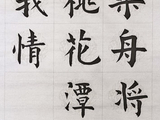 乘舟将
桃花潭
我情